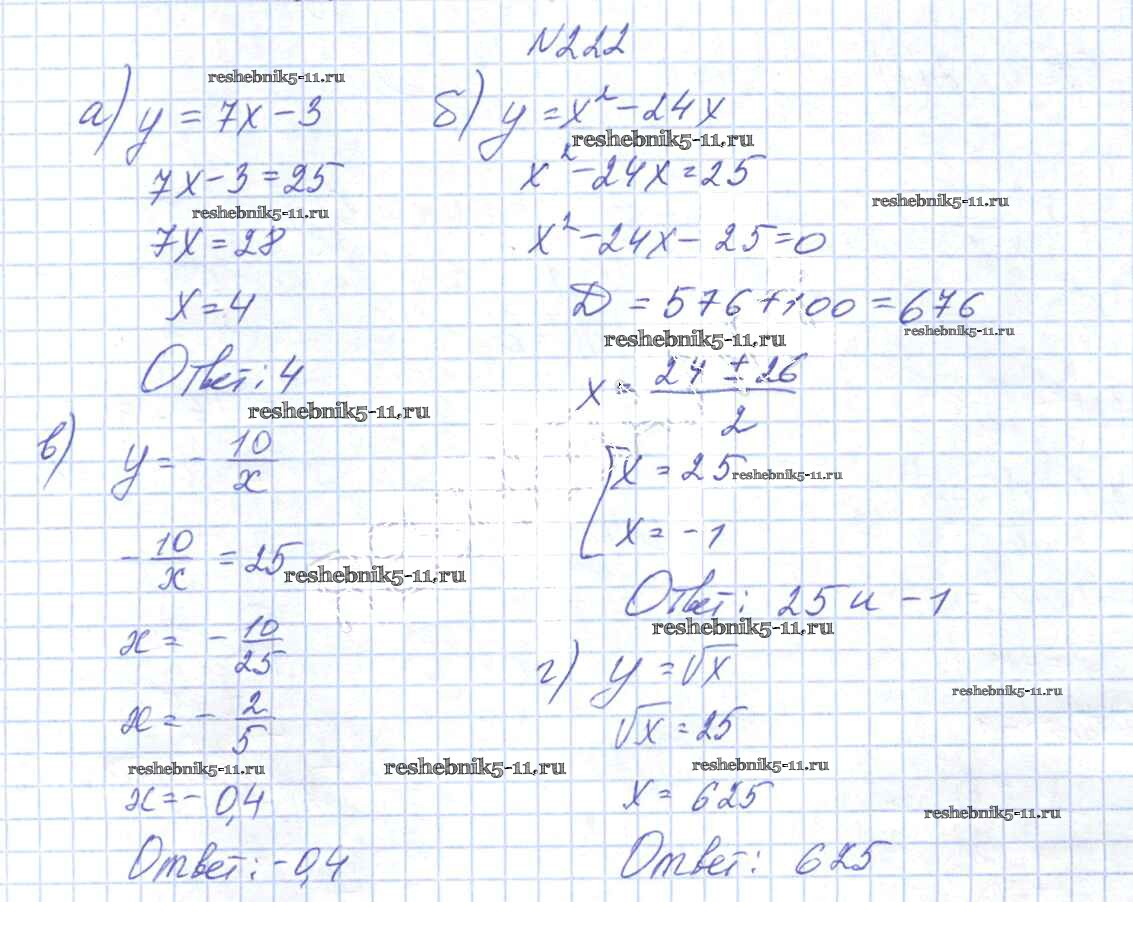 N222
reshebnik5-11.ru
а) y = 7x - 3
7x - 3 = 25
reshebnik5-11.ru
7x = 28
x = 4
Ответ: 4
reshebnik5-11.ru
б) y = x² - 24x
reshebnik5-11.ru
x² - 24x = 25
reshebnik5-11.ru
x² - 24x - 25 = 0
D = 576 + 100 = 676
reshebnik5-11.ru
reshebnik5-11.ru
x = (24 ± 26)/2
[ x = 25
reshebnik5-11.ru
x = -1
Ответ: 25 и -1
reshebnik5-11.ru
в) y = - 10/x
- 10/x = 25
reshebnik5-11.ru
x = - 10/25
x = - 2/5
reshebnik5-11.ru
reshebnik5-11.ru
x = - 0,4
Ответ: -0,4
г) y = √x
reshebnik5-11.ru
√x = 25
reshebnik5-11.ru
x = 625
reshebnik5-11.ru
Ответ: 625